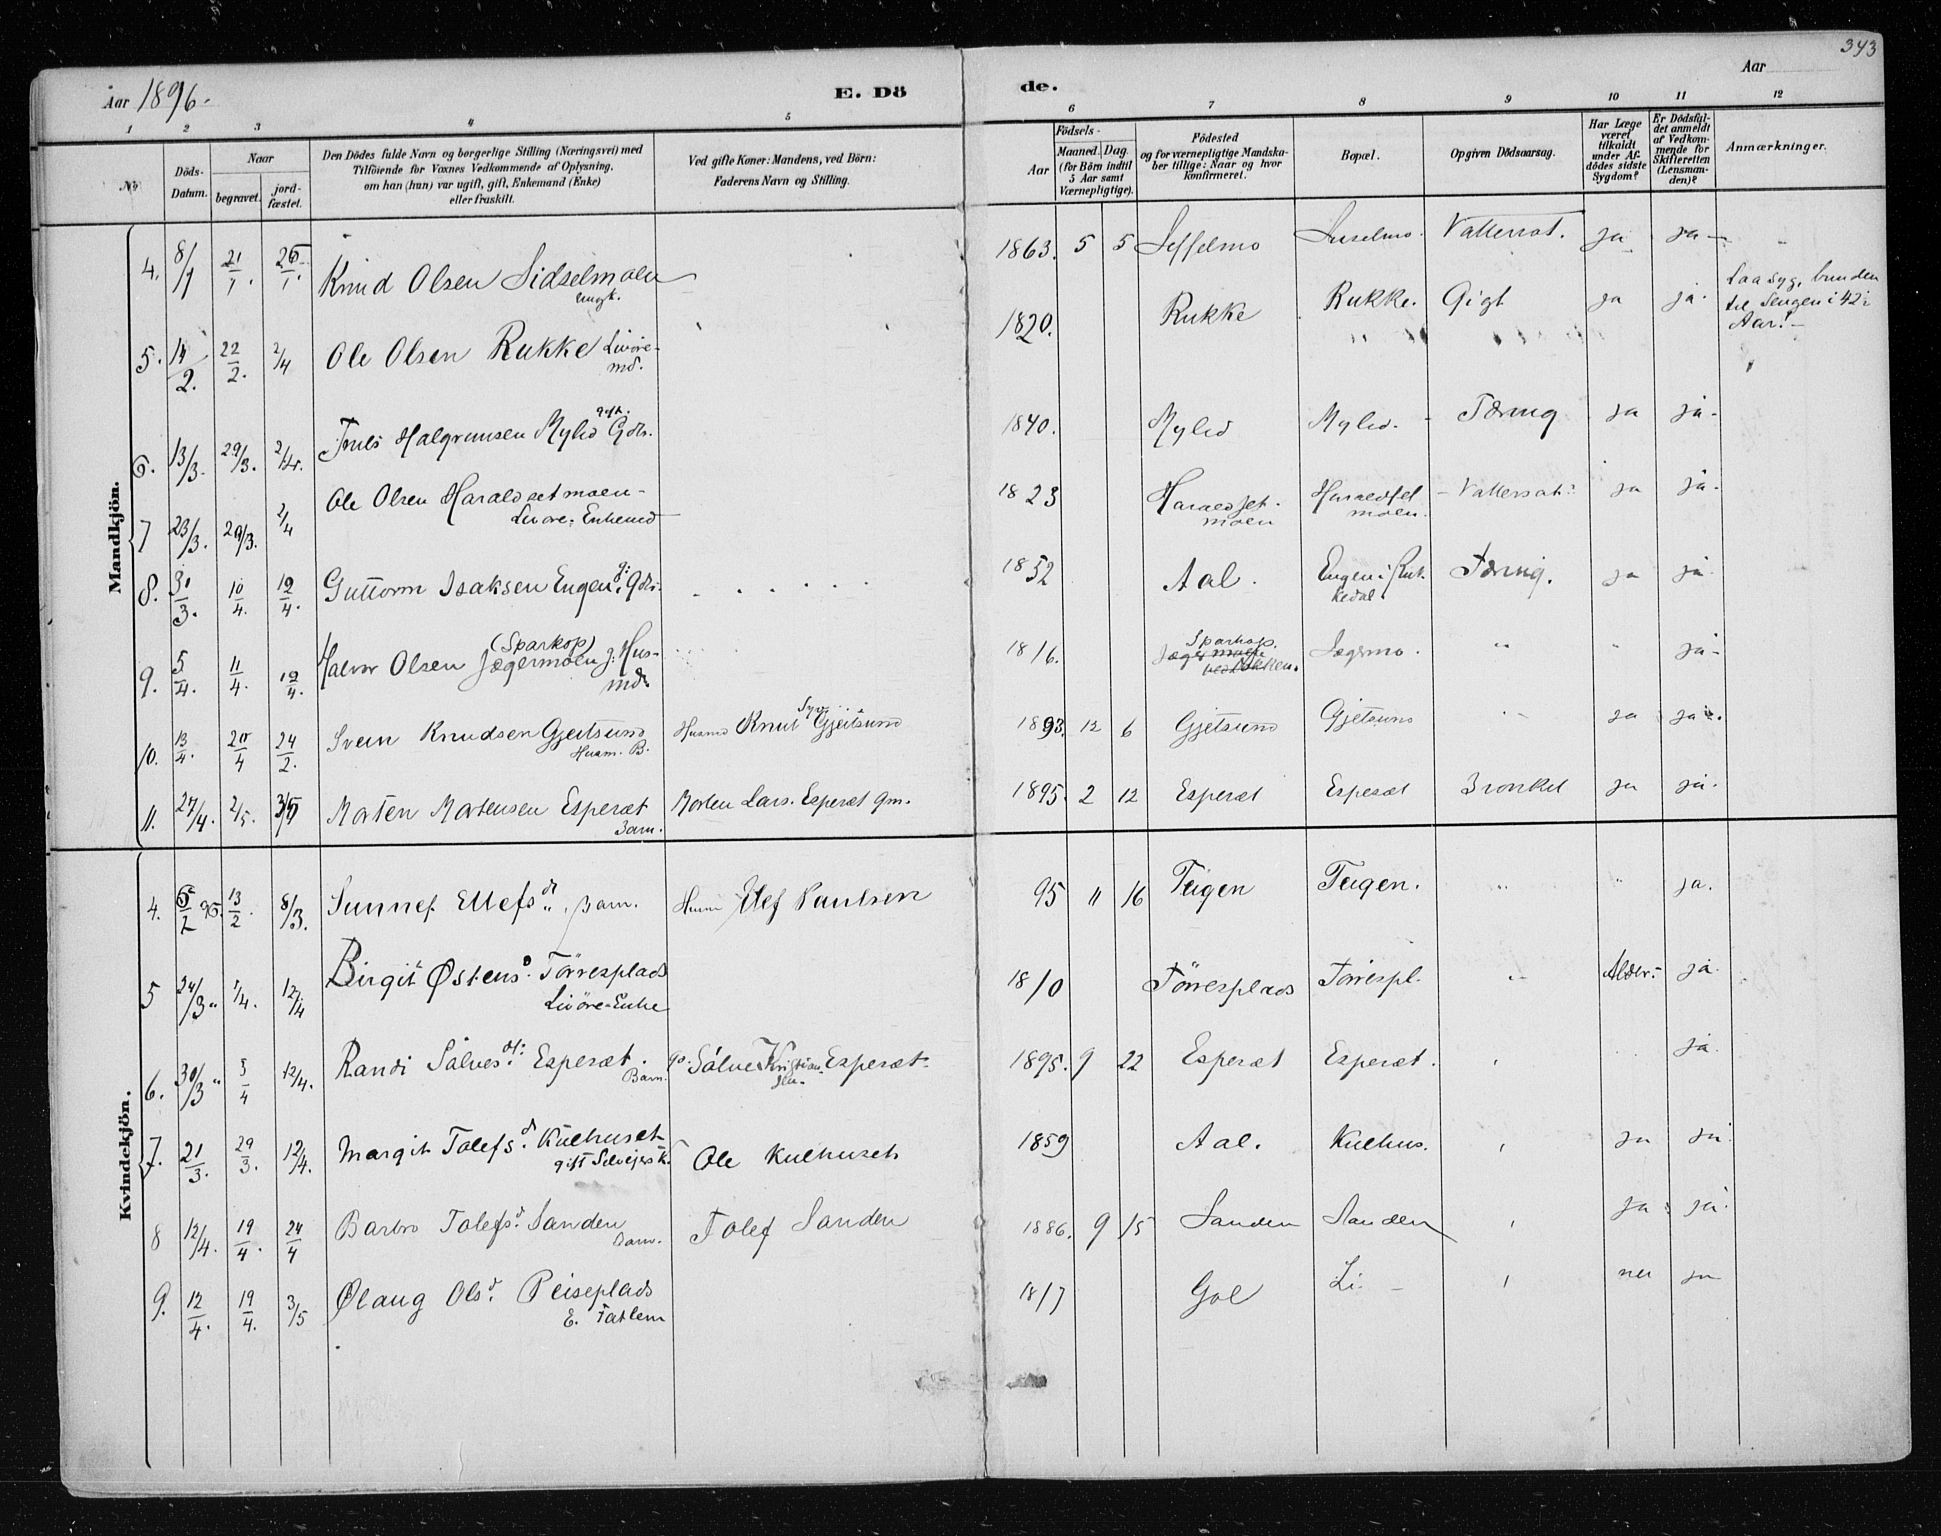 343
Aar 1896.
E. Dö
de.
Aar
1
2
3
4
5
6
7
8
9
10
11
12
No
Döds-
Datum.
Naar
begravet.
jord-
fæstet.
Den Dödes fulde Navn og borgerlige Stilling (Næringsvei) med
Tilföiende for Voxnes Vedkommende af Oplysning.
om han (hun) var ugift, gift, Enkemand (Enke)
eller fraskilt.
Ved gifte Koner: Mandens, ved Börn:
Faderens Navn og Stilling.
Födsels-
Aar
Maaned.
Dag.
(for Börn indtil
5 Aar samt
Værnepligtige).
Födested
og for værnepligtige Mandska-
ber tillige: Naar og hvor
konfirmeret.
Bopæl.
Opgiven Dödsaarsag.
Har Læge
været
tilkaldt
under Af-
dödes sidste
Sygdom?
Er Dödsfal-
det anmeldt
af Vedkom-
mende for
Skifteretten
(Lensman-
den)?
Anmærkninger.
Mandkjön.
4. 8/1 21/1. 25/1. Knud Olsen Sidselmoen 1863. 5 5 Vattersot. ja ja
ungk.
5. 14/2. 22/2. 2/4 Ole Olsen Rukke Livöre- 1820. Rukke Rukke. Gigt ja ja. Laa syg, bunden
md. til Sengen i 42
Aar!
6. 13/3. 29/3. 2/4. Halgrimsen Mylid gift. Gdbr. 1840. Mylid Mylid. Tæring ja ja.
7 23/3. 29/3. 2/4 Ole Olsen Haraldsetmoen 1823 Haraldset- Haraldset Vattersot ja ja.
Livöre-Enkemd moen moen.
8. 31/3. 10/4. 12/4. Guttorm Isaksen Engen g: Gdbr. 1852 Aal. Engen i Ruk- Tæring. ja ja
kedal.
9. 5/4. 11/4. 12/4. Halvor Olsen (Sparkop) Jægermoen g: Hus- 1816. Sparkop Jægermo. " " ja
md.
10. 13/4. 20/4 24/2. Svein Knudsen Gjeitsund Husmd Knut Gjeitsund 1893. 12 6 Gjetsund Gjetsund " ja ja.
Husm. B.
11. 27/4. 2/5. 3/5 Morten Mortensen Esperæt Morten Lars. Esperæt gm. 1895. 2 12 Esperæt Esperæt Bronkit ja ja.
Barn.
Kvindekjön.
4. 5/2 96. 13/2. 8/3. Sunnef Ellefsd. Barn. Husm Elef Paulsen 95 11 16 Teigen Teigen. " " ja.
5 24/3 " 1/4. 12/4 Birgit Østensd. Törresplads 1810 Törresplads Törrespl. " Alder. ja
Livöre-Enke
6. 30/3 " 3/4 12/4. Randi Sálvesdt. Esperæt. Sálve Kristian- Esperæt. 1895. 9 22 Esperæt Esperæt. ja
Barn. sen.
7. 21/3. 29/3. 12/4. Margit Tolefsd. Kulhuset Ole Kulhuset 1859 Aal. Kulhus. ja ja
gift Selvejers K.
8 12/4. 19/4. 24/4 Barbro Tolefsd. Sanden Tolef Sanden 1886. 9 15 Sanden Sanden ja ja.
Barn.
9. 12/4. 19/4. 3/5 Ølaug Olsd. Peiseplads 1817 Gol Li nei ja
E. Fatlem